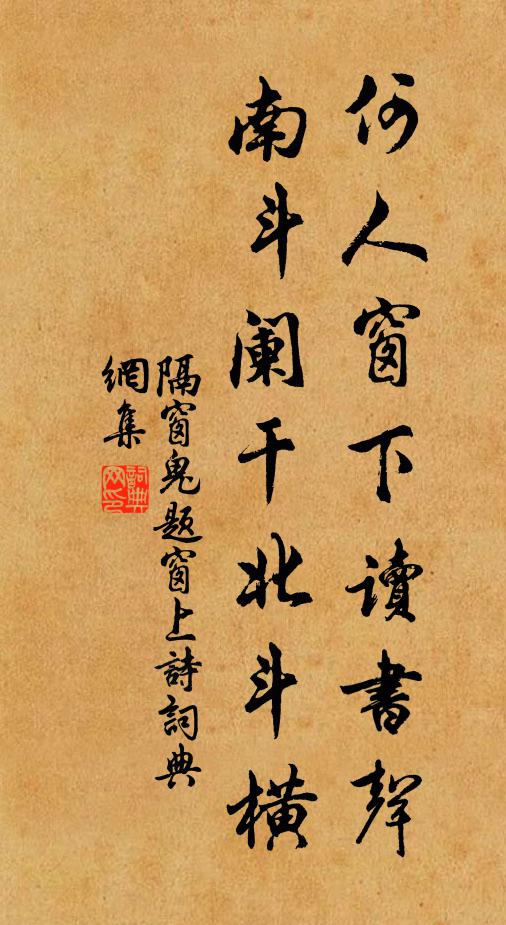 何人窗下讀書聲
南斗闌干北斗橫
隔窗鬼題窗上詩詞典
網集
詞典網印